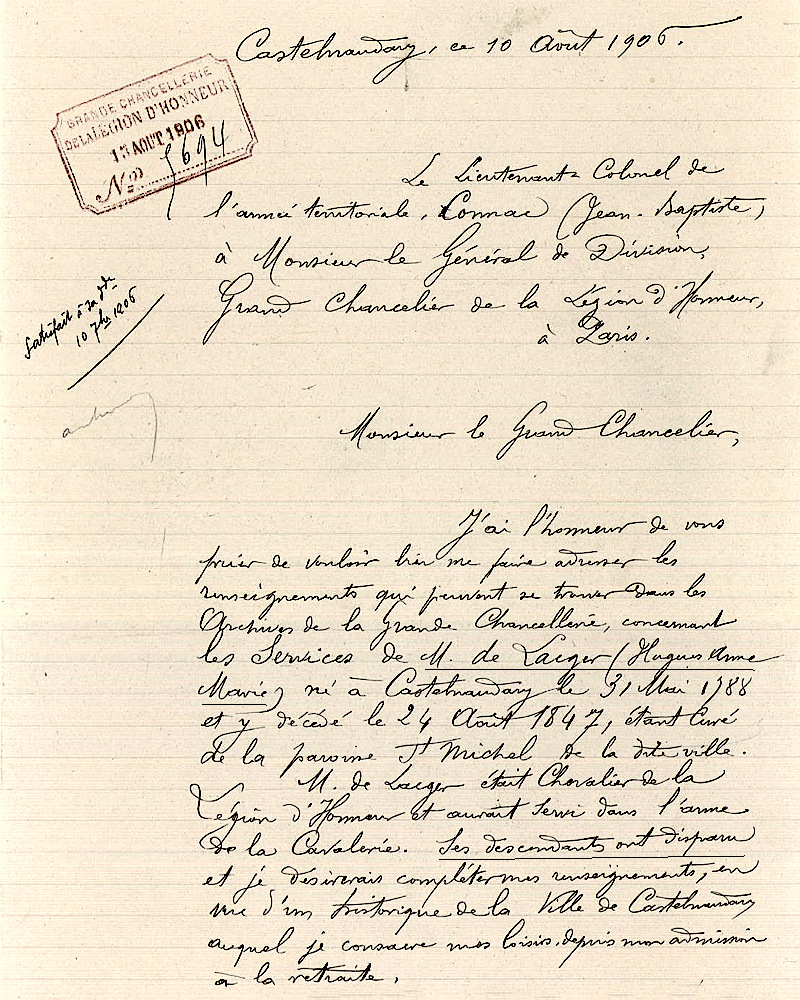 Castelnaudary, ce 10 Août 1906.
GRANDE CHANCELLERIE
DE LA LÉGION D'HONNEUR
13 AOUT 1906
No 5694
Le Lieutenant Colonel de
l'armée territoriale, Connac (Jean-Baptiste,)
à Monsieur le Général de Division,
Grand Chancelier de la Légion d'Honneur,
à Paris.
Satisfait à sa dde
10 7bre 1906
Monsieur le Grand Chancelier,
J'ai l'honneur de vous
prier de vouloir bien me faire adresser les
renseignements qui peuvent se trouver dans les
Archives de la Grande Chancellerie, concernant
les Services de M. de Laeger (Hugues Anne
Marie) né à Castelnaudary le 31 Mai 1788
et y décédé le 24 Août 1847, étant Curé
de la paroisse St Michel de la dite ville.
M. de Laeger était Chevalier de la
Légion d'Honneur et aurait servi dans l'arme
de la Cavalerie. Ses descendants ont disparu
et je désirerais compléter mes renseignements, en
vue d'un historique de la Ville de Castelnaudary
auquel je consacre mes loisirs depuis mon admission
à la retraite.